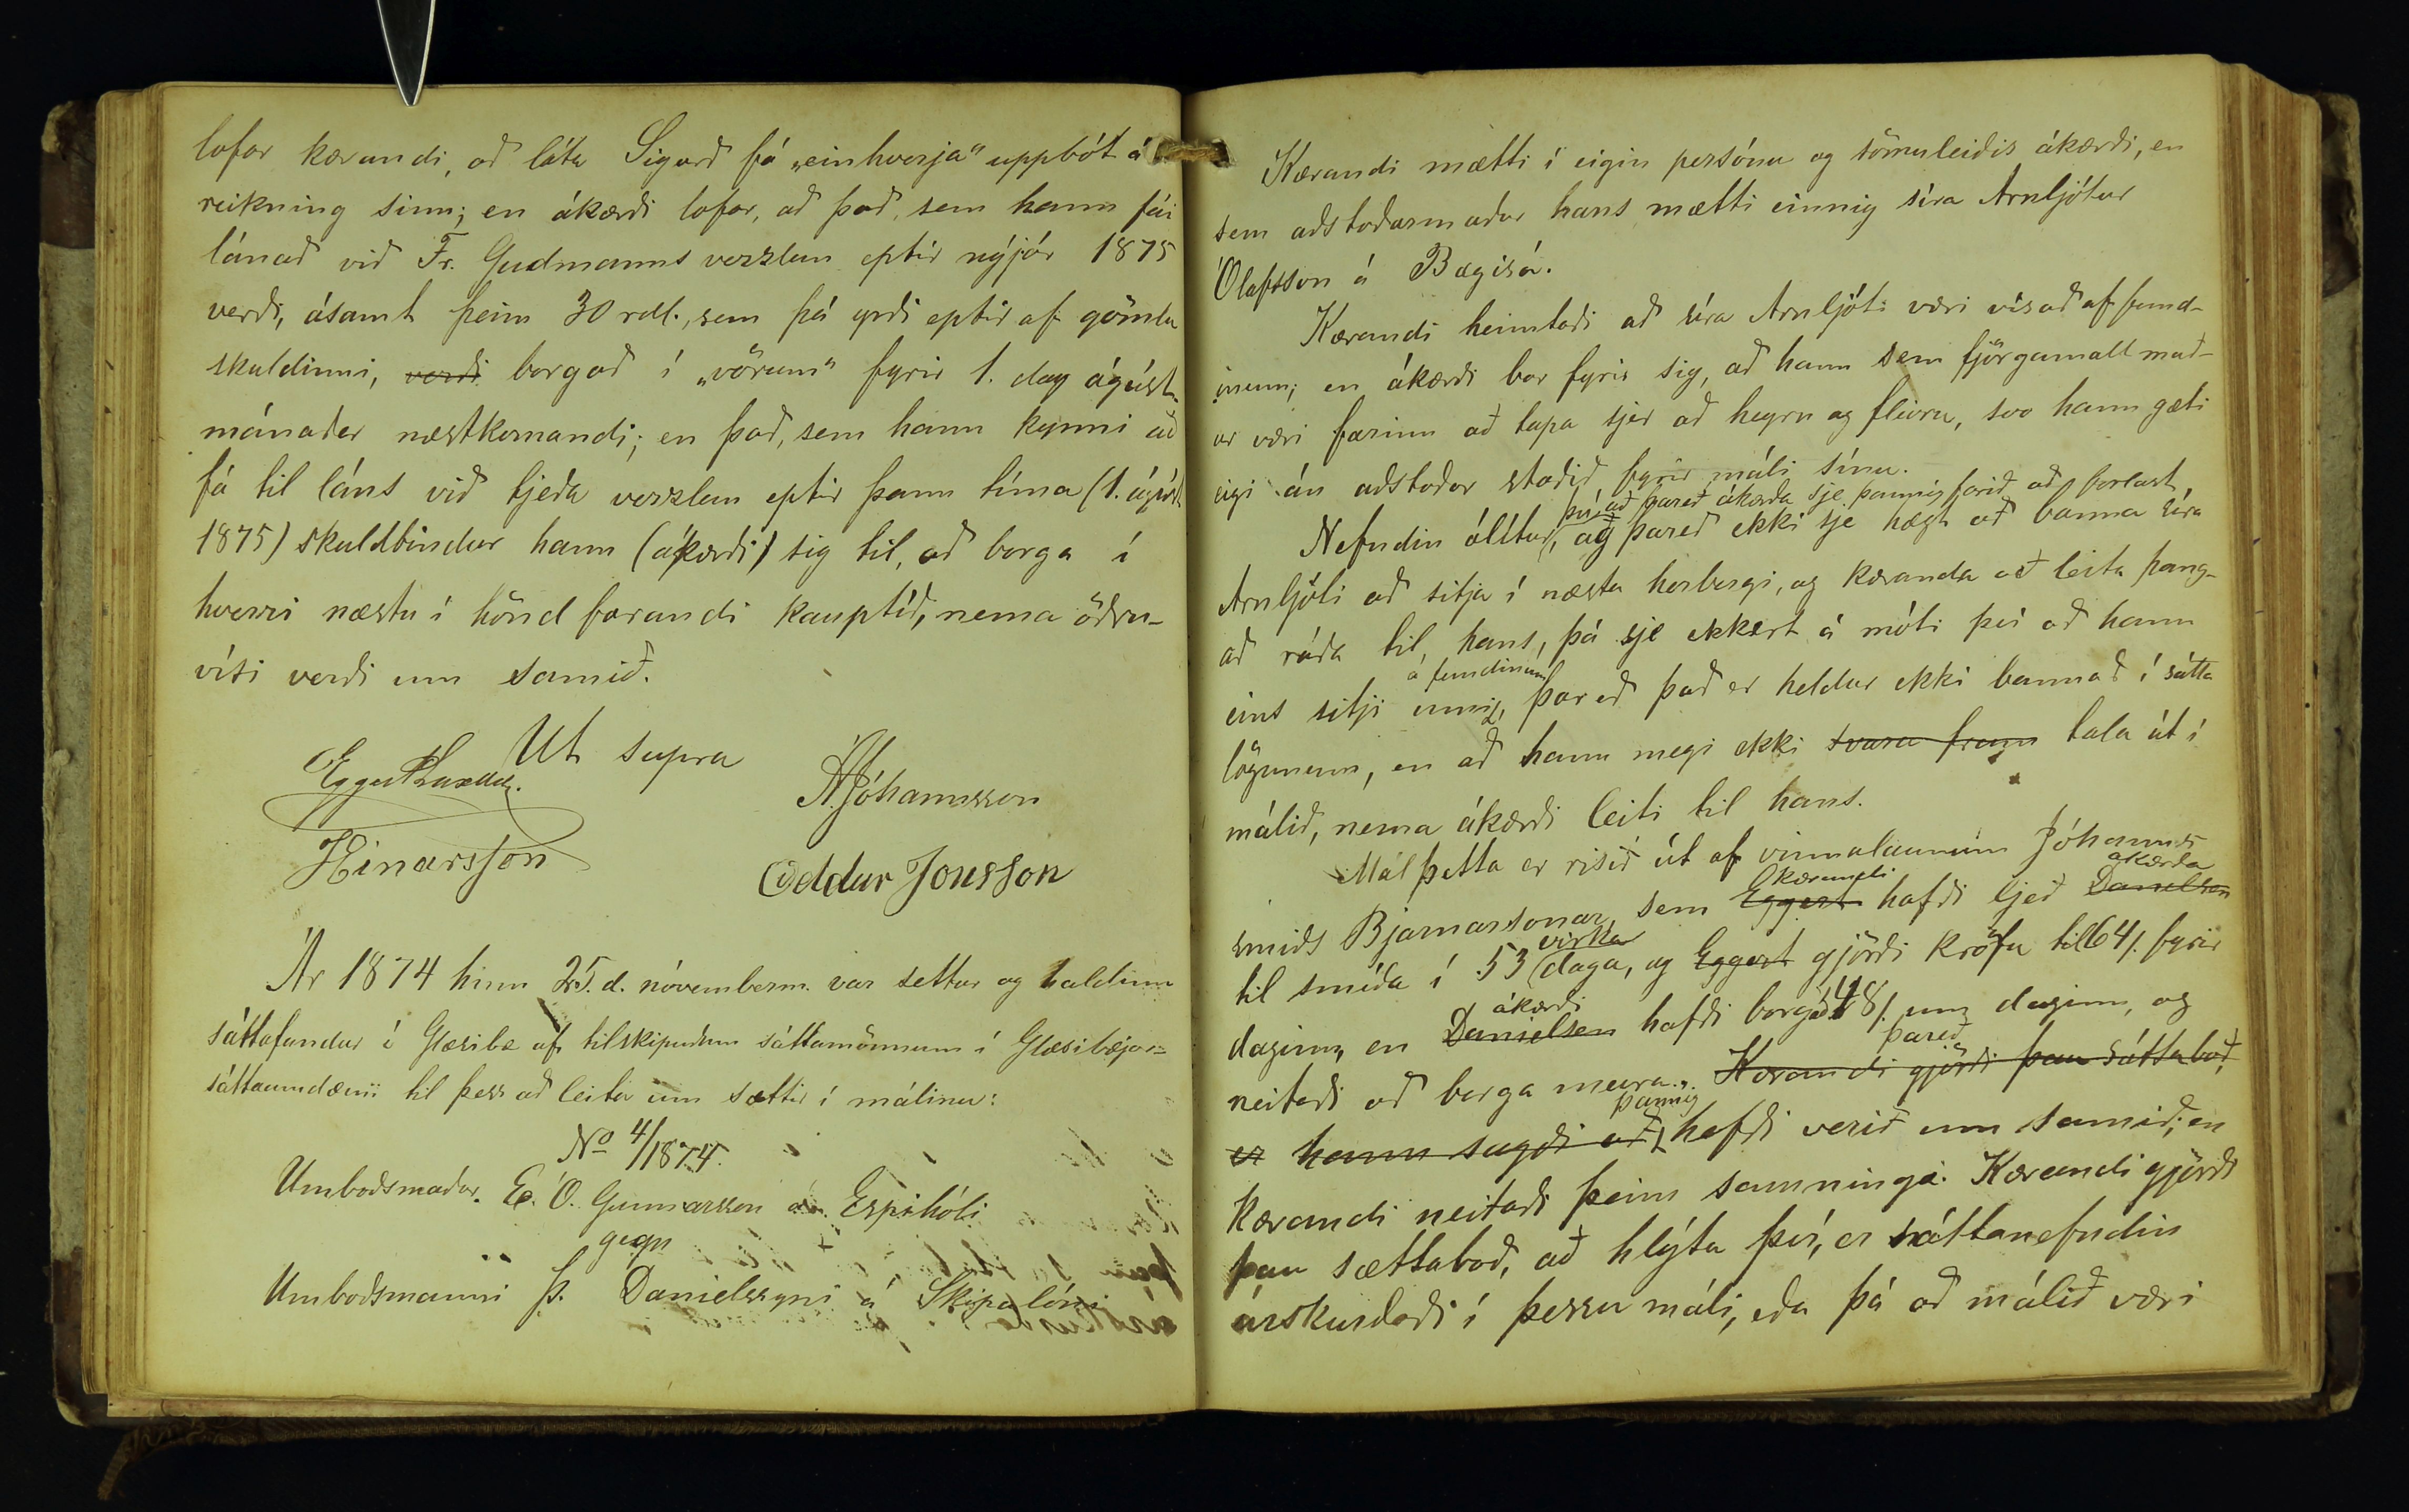 lofar kærandi, að láta Sigurð fá „einhverja" uppbót á
reikning sinn; en ákærði lofar, að það, sem hann fái
lánað við Fr. Gudmanns verzlun eptir nýjár 1875
verði, ásamt þeim 30 rdl., sem þá yrði eptir af gömlu
skuldinni, verði borgað í „vörum" fyrir 1. dag ágúst-
mánaðar næstkomandi; en það, sem hann kynni að
fá til láns við tjeða verzlun eptir þann tíma (1. ágúst
1875) skuldbindur hann (ákærði) sig til, að borga í
hverri næstu í hönd farandi kauptíð, nema öðru-
vísi verði um samið.
Ut supra
Eggert Laxdal.
A. Jóhannsson
HEinarsson
Oddur Jonsson
Ár 1874 hinn 25. d. nóvemberm. var settur og haldinn
sáttafundur í Glæsibæ af tilskipuðum sáttamönnum í Glæsibæjar-
sáttaumdæmi til þess að leita um sættir í málinu:
No 4/1874.
Umboðsmaður E. Ó. Gunnarsson á Espihóli
gegn
Umboðsmanni Þ. Danielssyni á Skipalóni
Kærandi mætti í eigin persónu og sömuleiðis ákærði, en
sem aðstoðarmaður hans mætti einnig síra Arnljótur
Ólafsson á Bægisá.
Kærandi heimtaði að síra Arnljóti væri vísað af fund-
inum; en ákærði bar fyrir sig, að hann sem fjörgamall mað-
ur væri farinn að tapa sjer að heyrn og fleiru, svo hann gæti
eigi án aðstoðar staðið fyrir máli sínu.
því að þareð ákærða sje þannig farið að forlast,
Nefndin álítur, að þareð ekki sje hægt að banna síra
Arnljóti að sitja í næsta herbergi, og kæranda að leita þang-
að ráða til hans, þá sje ekkert á móti því að hann
á fundinum
eins sitji inni, þar eð það er heldur ekki bannað í sátta
lögunum, en að hann megi ekki svara fram tala út í
málið, nema ákærði leiti til hans.
Mál þetta er risið út af vinnulaunum Jóhanns
kærandi ákærða
smiðs Bjarnarsonar, sem Eggert hafði ljeð Danielsen
virka
til smíða í 53 daga, og Eggert gjörði kröfu til 64/. fyrir
ákærði
daginn, en Danielsen hafði borgað 48/. um daginn, og
þareð
neitaði að borga meira. Kærandi gjörði þau sáttaboð,
þannig
er hann sagði að hafði verið um samið; en
kærandi neitaði þeim samningi. Kærandi gjörði
þau sættaboð, að hlýta því, er sáttanefndin
úrskurðaði í þessu máli, eða þá að málið væri